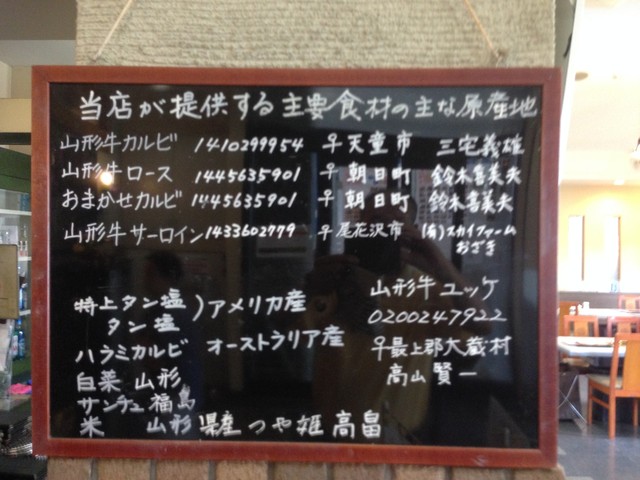 当店が提供する主要食材の主な原産地
山形牛カルビ 1410299954 ♀天童市 三宅義雄
山形牛ロース 1445635901 ♀ 朝日町 鈴木喜美夫
おまかせカルビ 1445635901 ♀ 朝日町 鈴木喜美夫
山形牛サーロイン 1433602779 ♀尾花沢市 (有)スカイファーム
おざき
山形牛ユッケ
0200247922
♀最上郡大蔵村
高山賢一
特上タン塩 ) アメリカ産
タン塩
オーストラリア産
ハラミカルビ
白菜 山形
サンチュ 福島
米 山形県産 つや姫 高畠